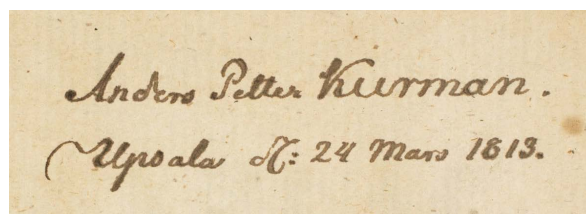 Anders Petter Kurman.
Upsala d: 24 Mars 1813.